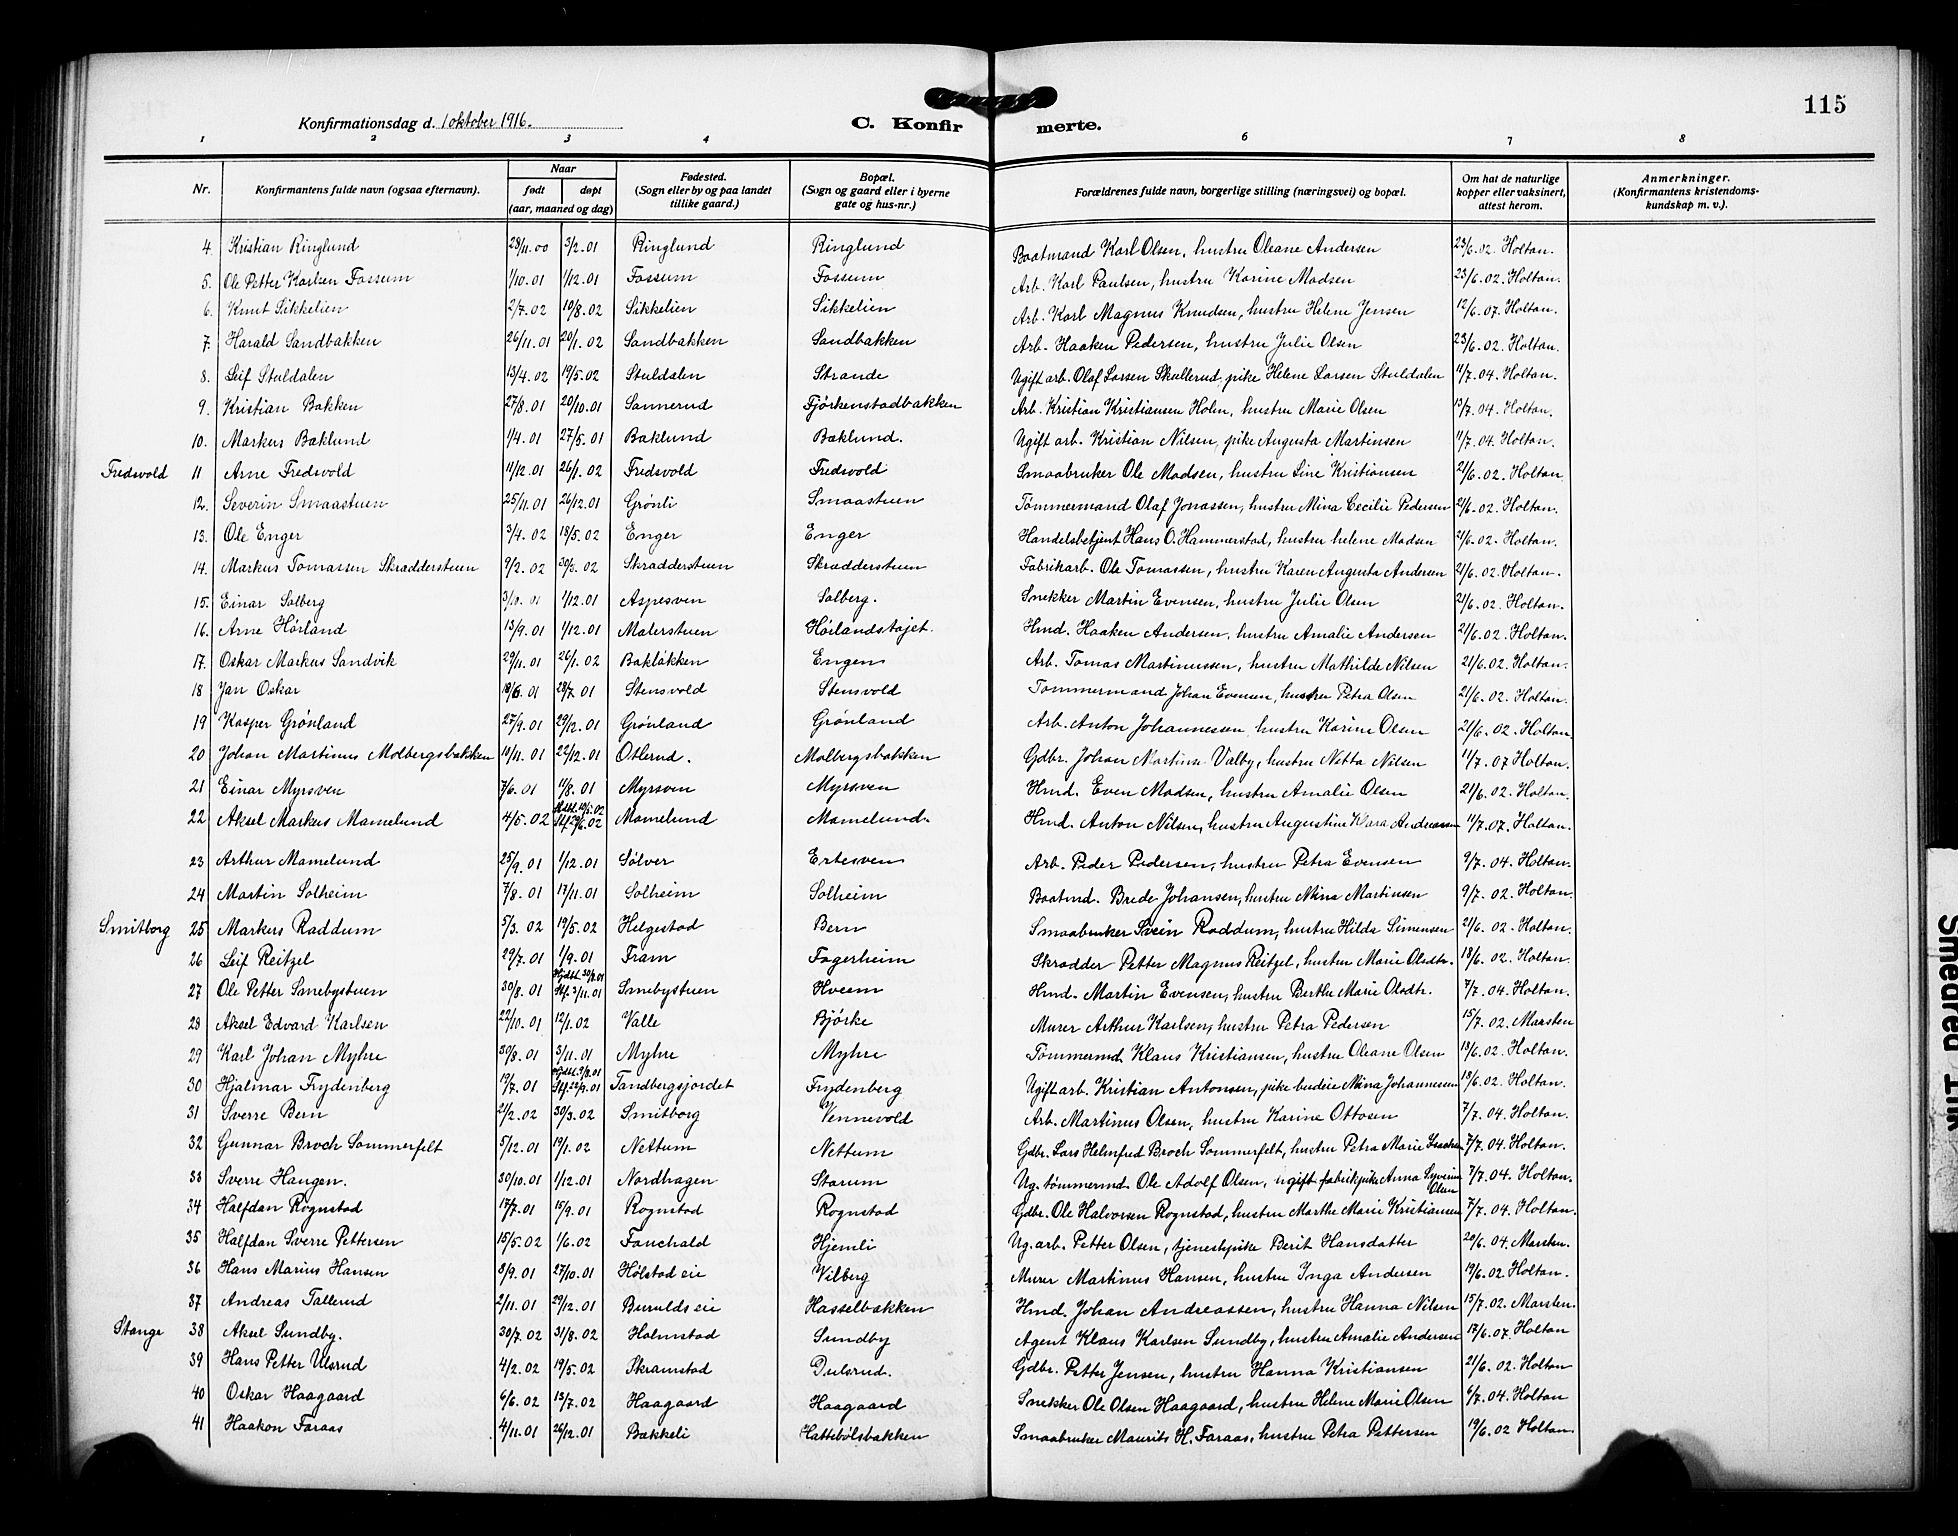 115
Konfirmationsdag d. 1 oktober 1916.
C. Konfirmerte.
1 2 3 4 6 7 8
Nr. Konfirmantens fulde navn (ogsaa efternavn). Naar født døpt (aar, maaned og dag) Fødested. (Sogn eller by og paa landet tillike gaard.) Bopæl. (Sogn og gaard eller i byerne gate og hus-nr.) Forældrenes fulde navn, borgerlige stilling (næringsvei) og bopæl. Om hat de naturlige kopper eller vaksinert, attest herom. Anmerkninger. (Konfirmantens kristendoms-kundskap m. v.).
4. Kristian Ringlund 28/11.00 3/2.01 Ringlund Ringlund Baatmand Karl Olsen, hustru Oleane Andersen 23/6.02. Holtan.
5. Ole Petter Karlsen Fossum 1/10.01 1/12.01 Fossum Fossum Arb. Karl Paulsen, hustru Karine Madsen 23/6.02. Holtan.
6. Knut Sikkelien 2/7.02 19/8.02 Sikkelien Sikkelien Arb. Karl Magnus Knudsen, hustru Helene Jensen 12/6.07. Holtan.
7. Harald Sandbakken 26/11.01 20/1.02 Sandbakken Sandbakken Arb. Haaken Pedersen, hustru Julie Olsen 23/6.02. Holtan.
8. Leif Stuldalen 13/4.02 19/5.02 Stuldalen Strande Ugift arb. Olaf Larsen Skollerud, pike Helene Larsen Stuldalen 11/7.04. Holtan.
9. Kristian Bakken 27/8.01 20/10.01 Sannerud Fjörkenstadbakken Arb. Kristian Kristiansen Holm, hustru Marie Olsen 13/7.04. Holtan.
10. Markus Baklund 1/4.01 27/5.01 Baklund Baklund. Ugift arb. Kristian Nilsen, pike Augusta Martinsen 11/7.04. Holtan.
Fredsvold 11 Arne Fredsvold 11/12.01 26/1.02 Fredsvold Fredsvold Smaabruker Ole Madsen, hustru Line Kristiansen 21/6.02. Holtan
12. Severin Smaastuen 25/11.01 26/12.01 Grönli Smaastuen Tömmermand Olaf Jonassen, hustru Mina Cecilie Pedersen 21/6.02. Holtan.
13. Ole Enger 3/4.02 18/5.02 Enger Enger Handelsbetjent Hans O. Hammerstad, hustru helene Madsen 21/6.02. Holtan.
14. Markus Tomassen Skrædderstuen 9/2.02 Skrædderstuen Skrædderstuen Fabrikarb. Ole Tomassen, hustru Karen Augusta Andersen 21/6.02. Holtan.
15. Einar Solberg 3/10.01 1/12.01 Aspesven Solberg. Snekker Martin Evensen, hustru Julie Olsen 21/6.02. Holtan.
16. Arne Hörland 13/9.01 1/12.01 Malerstuen Höilandstøjet. Hmd. Haaken Andersen, hustru Amalie Andersen 21/6.02. Holtan.
17. Oskar Markus Sandvik 29/11.01 26/1.02 Baklökken Engen Arb. Tomas Martinussen, hustru Mathilde Nilsen 21/6.02. Holtan.
18 Jan Oskar 18/6.01 28/7.01 Stensvold Stensvold Tömmermand Johan Evensen, hustru Petra Olsen 21/6.02. Holtan.
19 Kasper Grönland 27/9.01 29/12.01 Grönland Grönland Arb. Anton Johannessen, hustru Karine Olsen 21/6.02. Holtan.
20 Johan Martinus Molbergsbakken 10/11.01 22/12.01 Otlerud. Molbergsbakken Gdbr. Johan Martinus Valby, hustru Netta Nilsen 11/7.07 Holtan.
21 Einar Myrsven 7/6.01 11/8.01 Myrsven Myrsven Hmd. Even Madsen, hustru Amalie Olsen 21/6.02. Holtan.
22 Aksel Markus Mamelund 4/5.02 Mamelund Mamelund. Hmd. Anton Nilsen, hustru Augustine Klara Andreassen 11/7.07. Holtan.
23 Arthur Mamelund 25/9.01 1/12.01 Sölver Ertesven Arb. Peder Pedersen, hustru Petra Evensen 9/7.04. Holtan.
24 Martin Solheim 7/8.01 17/11.01 Solheim Solheim Baatmd. Brede Johansen, hustru Mina Martinsen 9/7.02. Holtan.
Smitborg 25 Markus Raddum 5/3.02 19/5.02 Helgestad Bern Smaabruker Svein Raddum, hustru Hilda Simensen 21/6.02. Holtan.
26 Leif Reitzel 29/7.01 1/9.01 Fram Fagerheim Skrædder Petter Magnus Reitzel, hustru Marie Olsdtr. 18/6.02. Holtan.
27 Ole Petter Smebystuen 30/8.01 Hjdbt. 30/9.01 Stf. 3/11.01 Smebystuen Hveem Hmd. Martin Evensen, hustru Berthe Marie Olsdtr. 7/7.04. Holtan.
28 Aksel Edvard Karlsen 22/10.01 12/1.02 Valle Bjørke Murer Arthur Karlsen, hustru Petra Pedersen 15/7.02. Marsten
29 Karl Johan Myhre 30/8.01 3/11.01 Myhre Myhre Tömmermd. Klaus Kristiansen, hustru Oleane Olsen 18/6.02. Holtan.
30 Hjalmar Frydenberg 19/7.01 Tandbergsjordet Frydenberg Ugift arb. Kristian Antonsen, pike budeie Mina Johannessen 18/6.02. Holtan.
31 Sverre Bern 21/2.02 30/3.02 Smitborg Vennevold Arb. Martinus Olsen, hustru Karine Ottosen 7/7.04. Holtan.
32 Gunnar Broch Sommerfelt 5/12.01 19/1.02 Nettum Nettum Gdbr. Lars Helmfred Broch Sommerfelt, hustru Petra Marie Isaaksen 7/7.04. Holtan.
33 Sverre Haugen. 30/10.01 1/12.01 Nordhagen Starum Ug. tömmermd. Ole Adolf Olsen, ugift fabrikpike Anna Syverine Olsen 7/7.04. Holtan.
34 Halfdan Rognstad 17/7.01 15/9.01 Rognstad Rognstad Gdbr. Ole Halvorsen Rognstad, hustru Marthe Marie Kristiansen 7/7.04. Holtan.
35 Halfdan Sverre Pettersen 15/5.02 1/6.02 Fauchald Hjemli Ug. arb. Petter Olsen, tjenestpike Berit Hansdatter 20/6.04. Marsten.
36 Hans Marius Hansen 8/9.01 27/10.01 Hølstad eie Vilberg Murer Martinus Hansen, hustru Inga Andersen 19/6.02. Holtan.
37 Andreas Tallerud 2/11.01 29/12.01 Burulds eie Hasselbakken Hmd. Johan Andreassen, hustru Hanna Nilsen 15/7.02. Marsten.
Stange 38 Aksel Sundby. 30/7.02 31/8.02 Holmstad Sundby Agent Klaus Karlsen Sundby, hustru Amalie Andersen 17/6.07. Holtan
39 Hans Petter Ulsrud 4/2.02 19/5.02 Skramstad Dulsrud. Gdbr. Petter Jensen, hustru Hanna Kristiansen 21/6.02. Holtan
40 Oskar Haagaard 6/6.02 13/7.02 Haagaard Haagaard Snekker Ole Olsen Haagaard, hustru Helene Marie Olsen 6/7.04. Holtan
41 Haakon Faraas 4/11.01 26/12.01 Bakkeli Hattebölsbakken Smaabruker Maurits H. Faraas, hustru Petra Pettersen 19/6.02 Holtan.
Smeared Ink